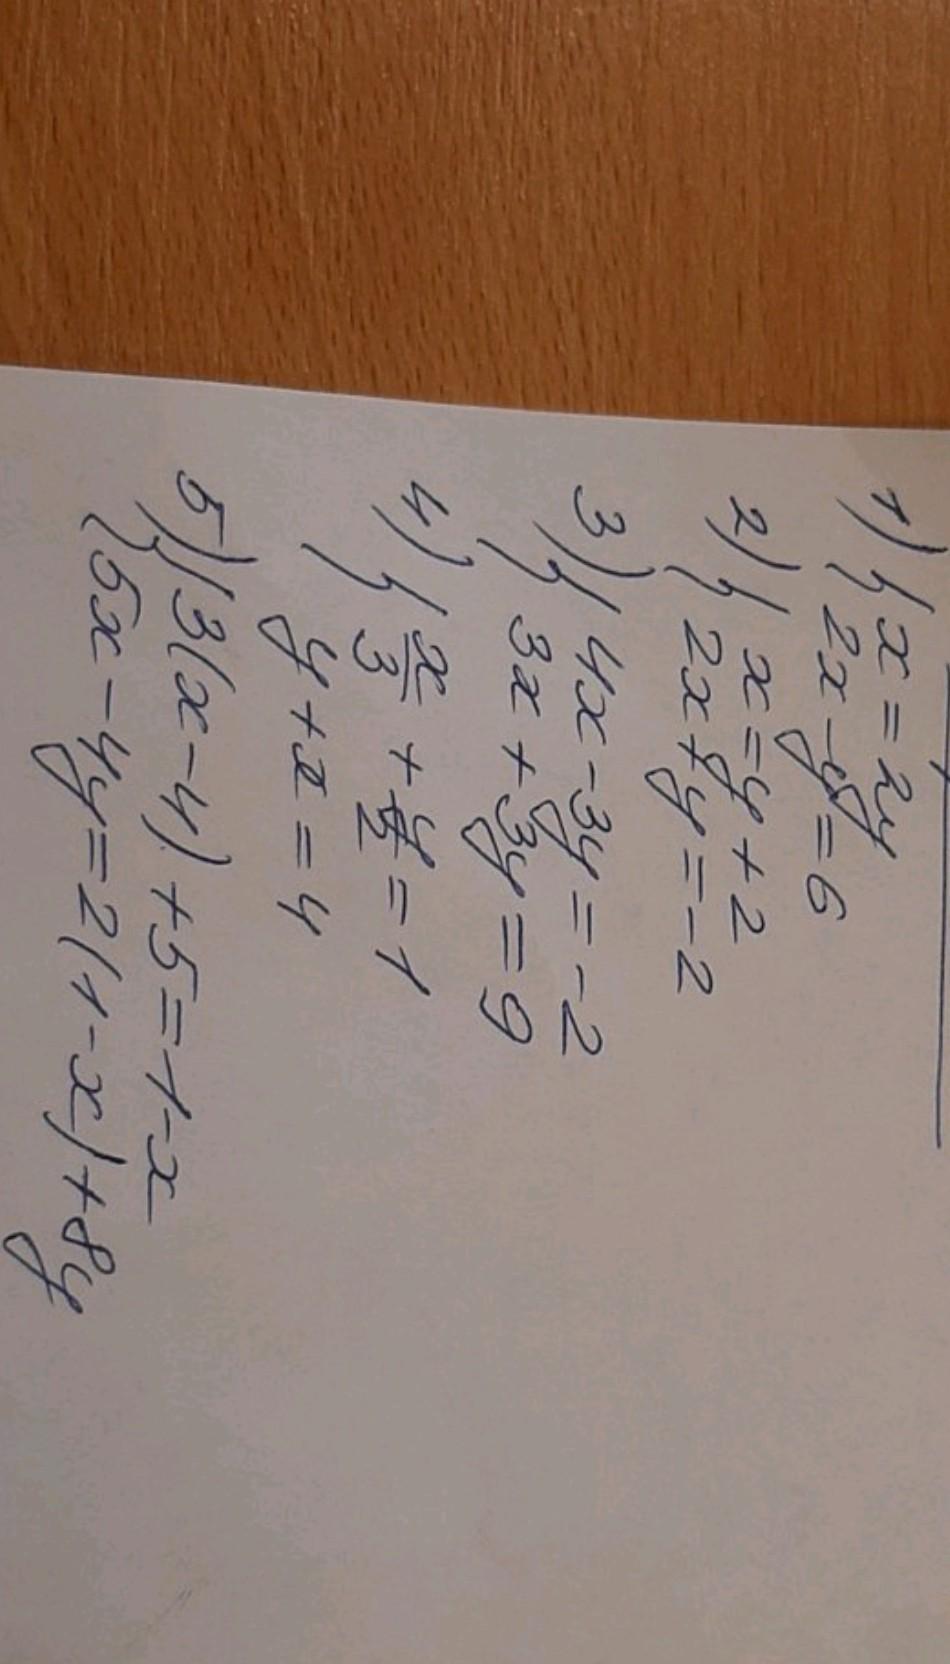 1) { x = 2y
2x - y = 6
2) { x = y + 2
2x + y = -2
3) { 4x - 3y = -2
3x + 3y = 9
4) { x/3 + y/2 = 1
y + x = 4
5) { 3(x - 4) + 5 = 1 - x
5x - 4y = 2(1 - x) + 8y